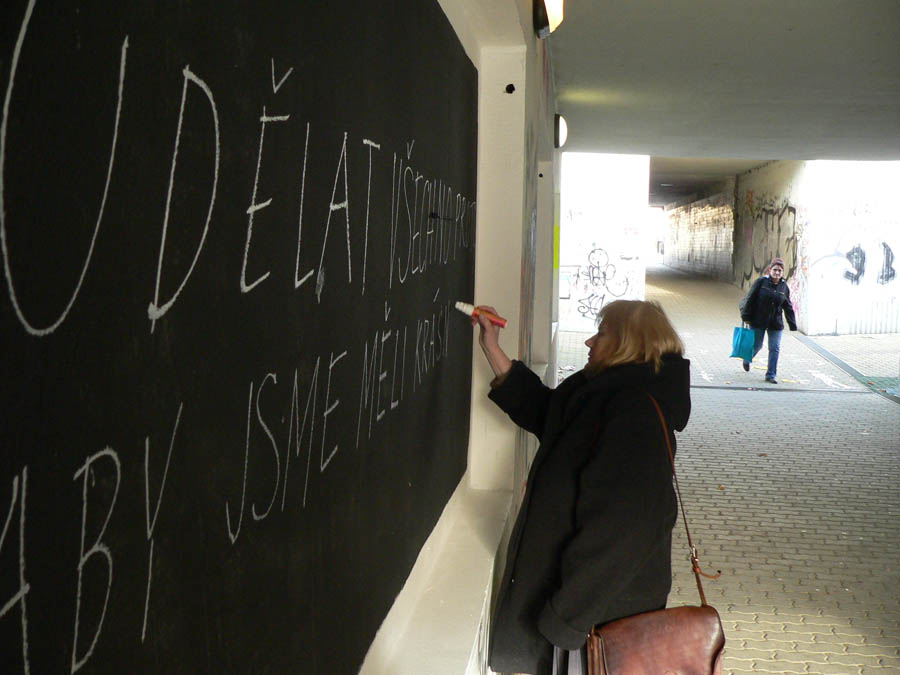 UDĚLAT VŠECHNO PRO
ABY JSME MĚLI KRÁS